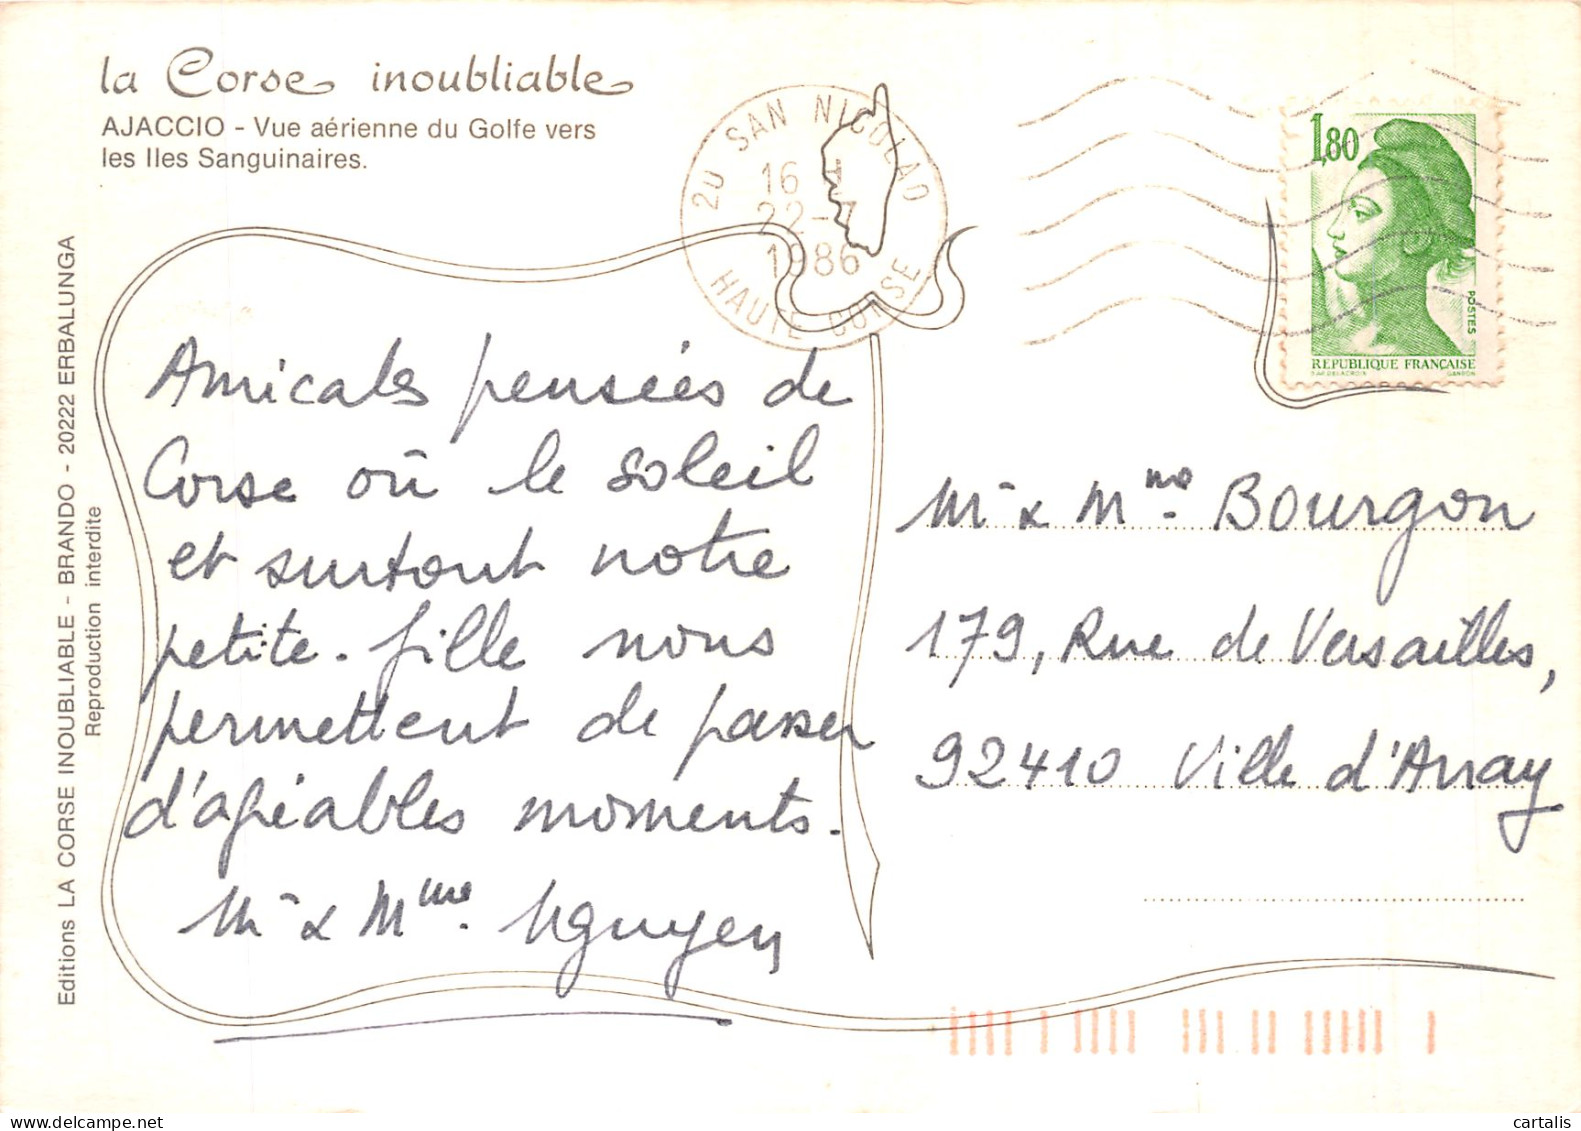 la Corse inoubliable
AJACCIO - Vue aérienne du Golfe vers
les Iles Sanguinaires.
20 SAN NICOLAO
16 H
22-
1986
HAUTE CORSE
1,80
POSTES
REPUBLIQUE FRANÇAISE
D'AP. DELACROIX GANDON
Editions LA CORSE INOUBLIABLE - BRANDO - 20222 ERBALUNGA
Reproduction interdite
Amicales pensées de
Corse où le soleil
et surtout notre
petite-fille nous
permettent de passer
d'agréables moments.
Mr & Mme. Nguyen
Mr & Mme. Bourgon
179, Rue de Versailles,
92410 Ville d'Avray
cartalis